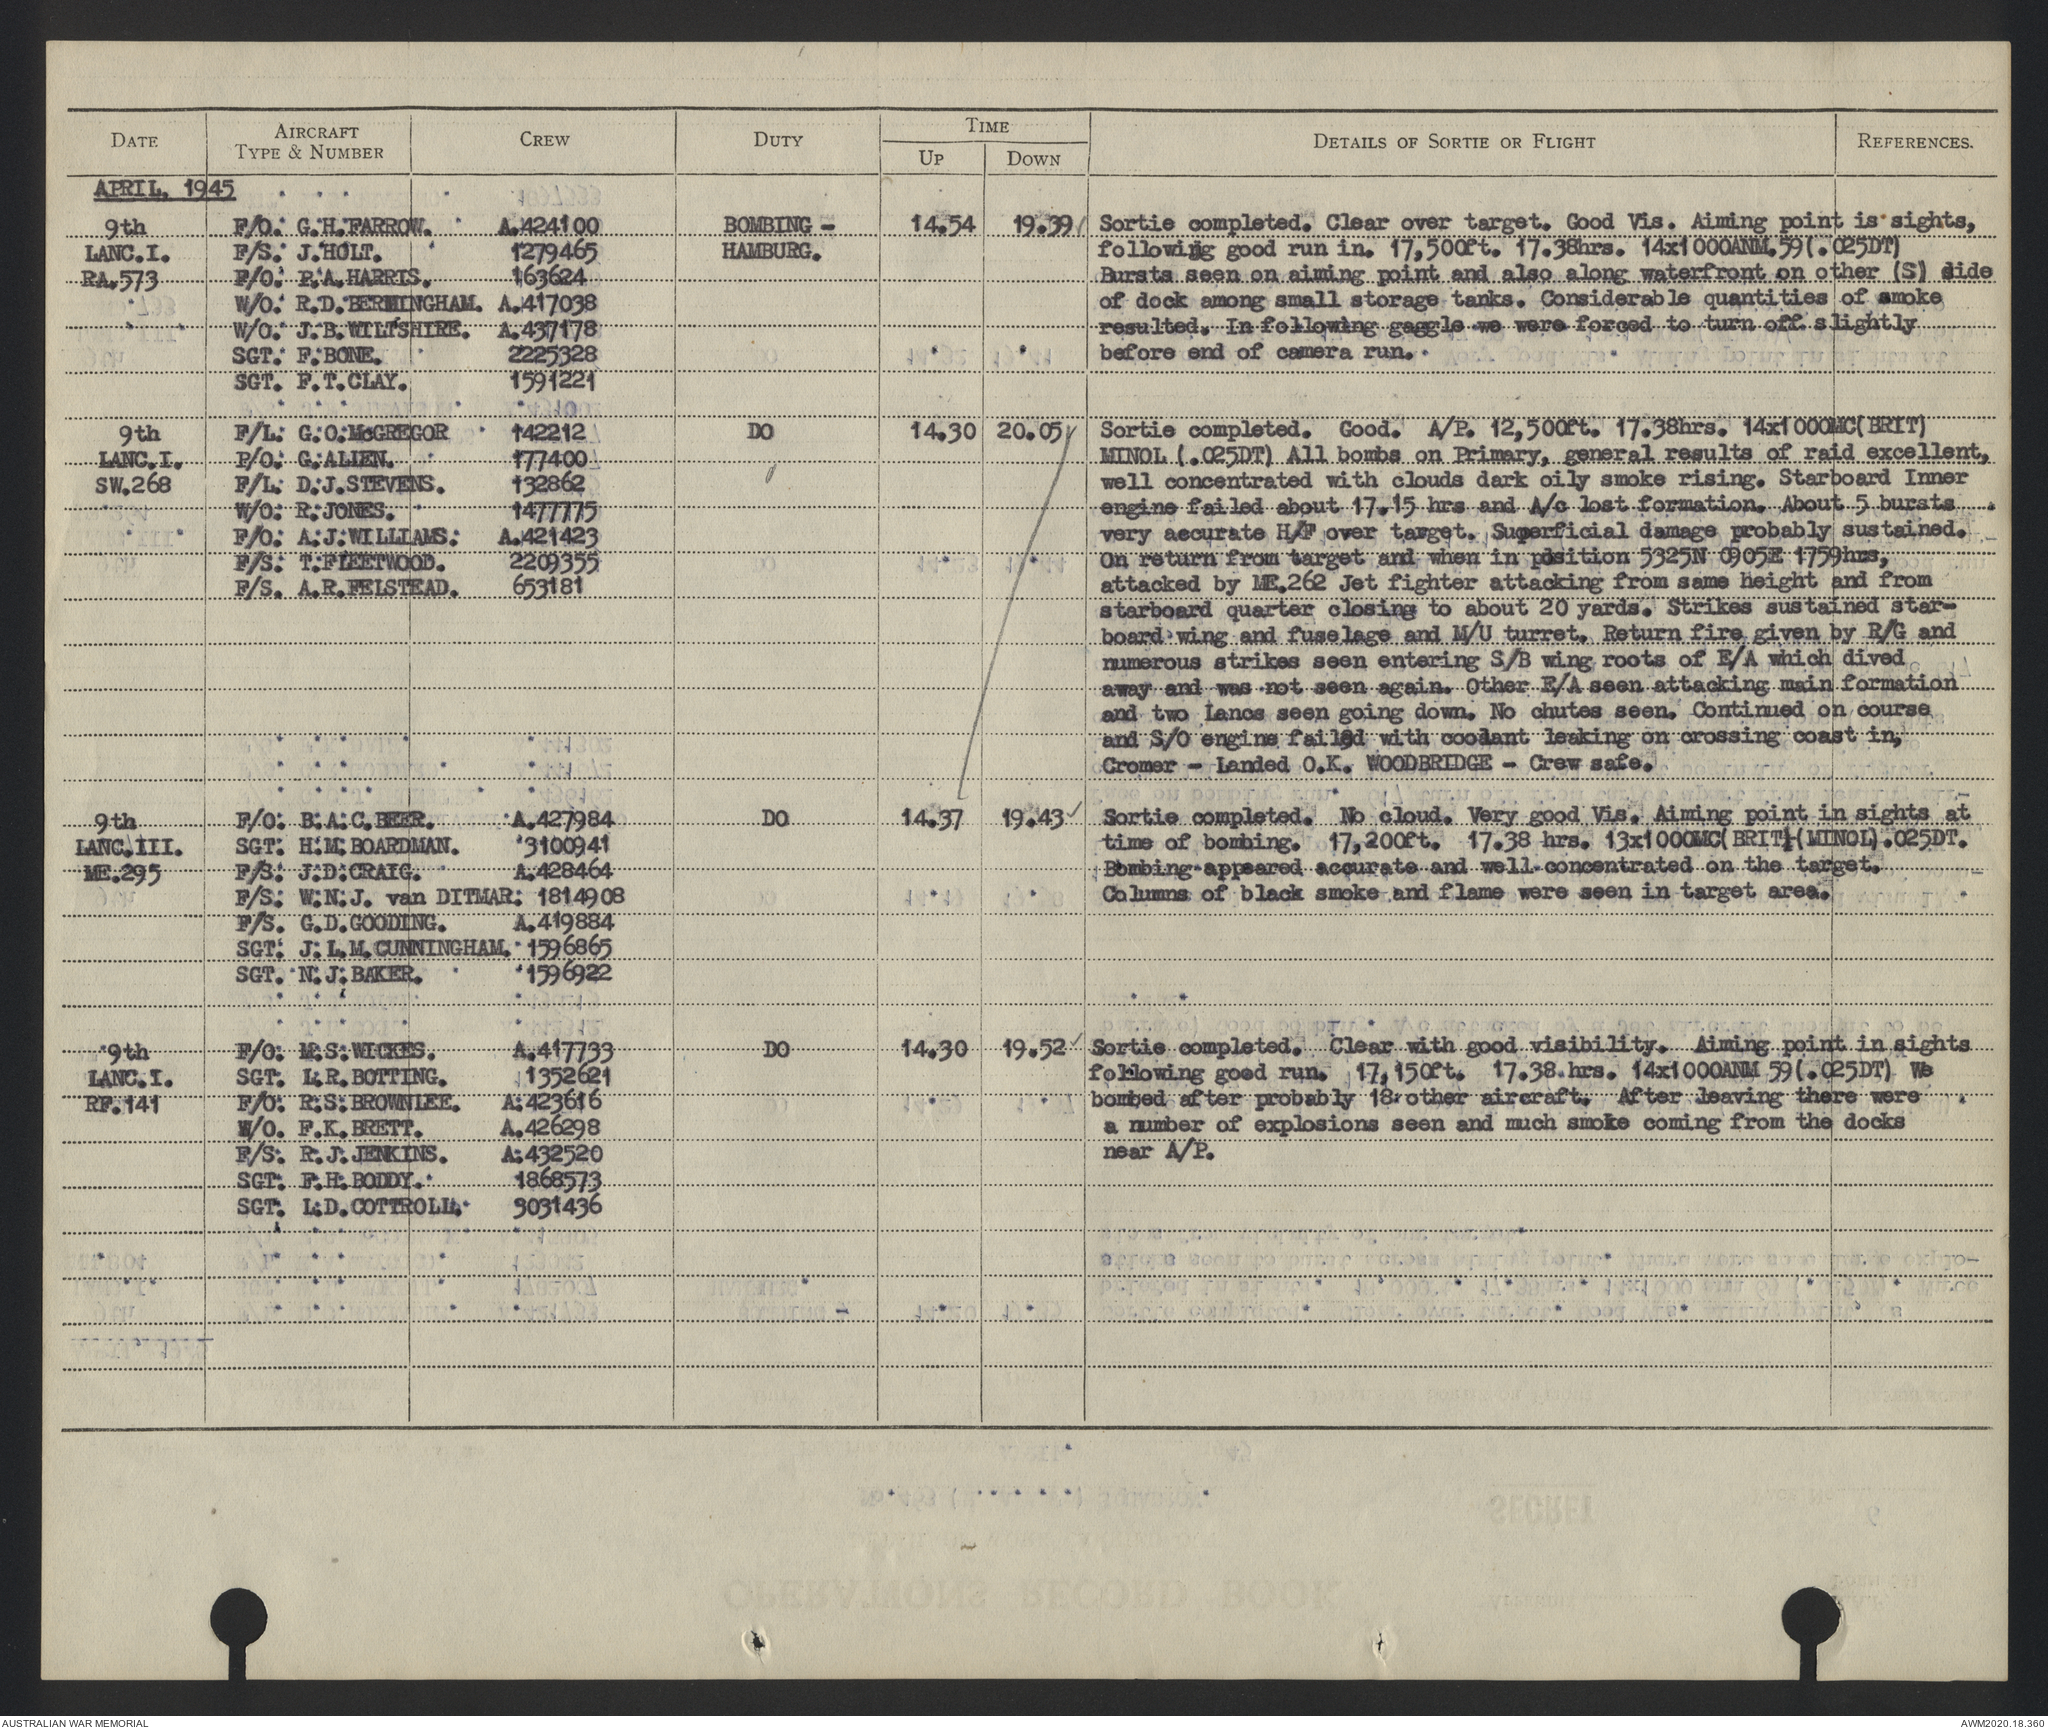 DATE
AIRCRAFT
TYPE & NUMBER
CREW
DUTY
TIME
UP
DOWN
DETAILS OF SORTIE OR FLIGHT
REFERENCES.
APRIL, 1945
9th
LANC.I.
RA.573
F/O. G.H.FARROW. A.424100
F/S. J.HOLT. 1279465
F/O. P.A.HARRIS. 163624
W/O. R.D.BERMINGHAM. A.417038
W/O. J.B.WILTSHIRE. A.437178
SGT. F.BONE. 2225328
SGT. F.T.CLAY. 1591221
BOMBING -
HAMBURG.
14.54 19.39
Sortie completed. Clear over target. Good Vis. Aiming point is sights,
following good run in. 17,500ft. 17.38hrs. 14x1000ANM.59(.025DT)
Bursts seen on aiming point and also along waterfront on other (S) side
of dock among small storage tanks. Considerable quantities of smoke
resulted. In following gaggle we were forced to turn off slightly
before end of camera run.
9th
LANC.I.
SW.268
F/L. G.O.McGREGOR 142212
P/O. G.ALLEN. 177400
F/L. D.J.STEVENS. 132862
W/O. R.JONES. 1477775
F/O. A.J.WILLIAMS. A.421423
F/S. T.FLEETWOOD. 2209355
F/S. A.R.FELSTEAD. 653181
DO
14.30 20.05
Sortie completed. Good. A/P. 12,500ft. 17.38hrs. 14x1000MC(BRIT)
MINOL (.025DT) All bombs on Primary, general results of raid excellent,
well concentrated with clouds dark oily smoke rising. Starboard Inner
engine failed about 17.15 hrs and A/c lost formation. About 5 bursts
very accurate H/F over target. Superficial damage probably sustained.
On return from target and when in position 5325N 0905E 1759hrs,
attacked by ME.262 Jet fighter attacking from same height and from
starboard quarter closing to about 20 yards. Strikes sustained star-
board wing and fuselage and M/U turret. Return fire given by R/G and
numerous strikes seen entering S/B wing roots of E/A which dived
away and was not seen again. Other E/A seen attacking main formation
and two Lancs seen going down. No chutes seen. Continued on course
and S/O engine failed with coolant leaking on crossing coast in,
Cromer - Landed O.K. WOODBRIDGE - Crew safe.
9th
LANC.III.
ME.295
F/O. B.A.C.BEER. A.427984
SGT. H.M.BOARDMAN. 3100941
F/S. J.D.CRAIG. A.428464
F/S. W.N.J. van DITMAR. 1814908
F/S. G.D.GOODING. A.419884
SGT. J.L.M.CUNNINGHAM. 1596865
SGT. N.J.BAKER. 1596922
DO
14.37 19.43
Sortie completed. No cloud. Very good Vis. Aiming point in sights at
time of bombing. 17,200ft. 17.38 hrs. 13x1000MC(BRIT)(MINOL).025DT.
Bombing appeared accurate and well concentrated on the target.
Columns of black smoke and flame were seen in target area.
9th
LANC.I.
RF.141
F/O. M.S.WICKES. A.417733
SGT. L.R.BOTTING. 1352621
F/O. R.S.BROWNLEE. A.423616
W/O. F.K.BRETT. A.426298
F/S. R.J.JENKINS. A.432520
SGT. F.H.BODDY. 1868573
SGT. L.D.COTTROLL. 3031436
DO
14.30 19.52
Sortie completed. Clear with good visibility. Aiming point in sights
following good run. 17,150ft. 17.38.hrs. 14x1000ANM 59(.025DT) We
bombed after probably 18 other aircraft. After leaving there were
a number of explosions seen and much smoke coming from the docks
near A/P.
AUSTRALIAN WAR MEMORIAL
AWM2020.18.360